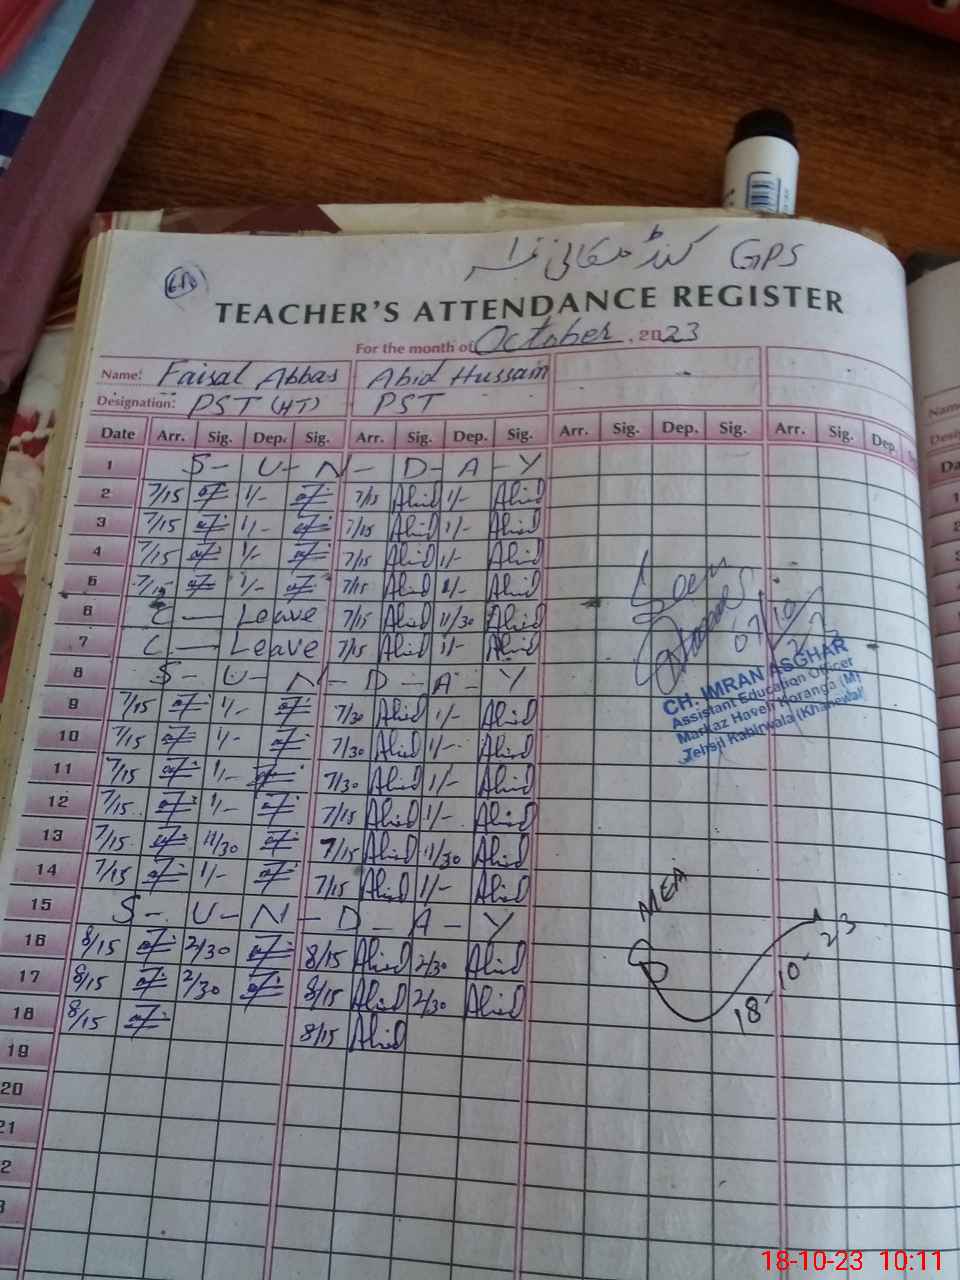 GPS کنڈ
TEACHER'S ATTENDANCE REGISTER
For the month of October, 2023
Name: Faisal Abbas Abid Hussain
Designation: PST (HT) PST
Date Arr. Sig. Dep. Sig. Arr. Sig. Dep. Sig. Arr. Sig. Dep. Sig. Arr. Sig. Dep.
1 S - U - N - D - A - Y
2 7/15 1/- 7/15 Abid 1/- Abid
3 7/15 1/- 7/15 Abid 1/- Abid
4 7/15 1/- 7/15 Abid 1/- Abid
5 7/15 1/- 7/15 Abid 1/- Abid
6 C — Leave 7/15 Abid 11/30 Abid
7 C — Leave 7/15 Abid 1/- Abid
8 S - U - N - D - A - Y
9 7/15 1/- 7/30 Abid 1/- Abid
10 7/15 1/- 7/30 Abid 1/- Abid
11 7/15 1/- 7/30 Abid 1/- Abid
12 7/15 1/- 7/15 Abid 1/- Abid
13 7/15 11/30 7/15 Abid 11/30 Abid
14 7/15 1/- 7/15 Abid 1/- Abid
15 S - U - N - D - A - Y
16 8/15 2/30 8/15 Abid 2/30 Abid
17 8/15 2/30 8/15 Abid 2/30 Abid
18 8/15 8/15 Abid
19
20
21
Seen
CH. IMRAN ASGHAR
Assistant Education Officer
Markaz Haveli Koranga (M)
Tehsil Kabirwala (Khanewal)
MEA
18-10-23
Name
18-10-23 10:11